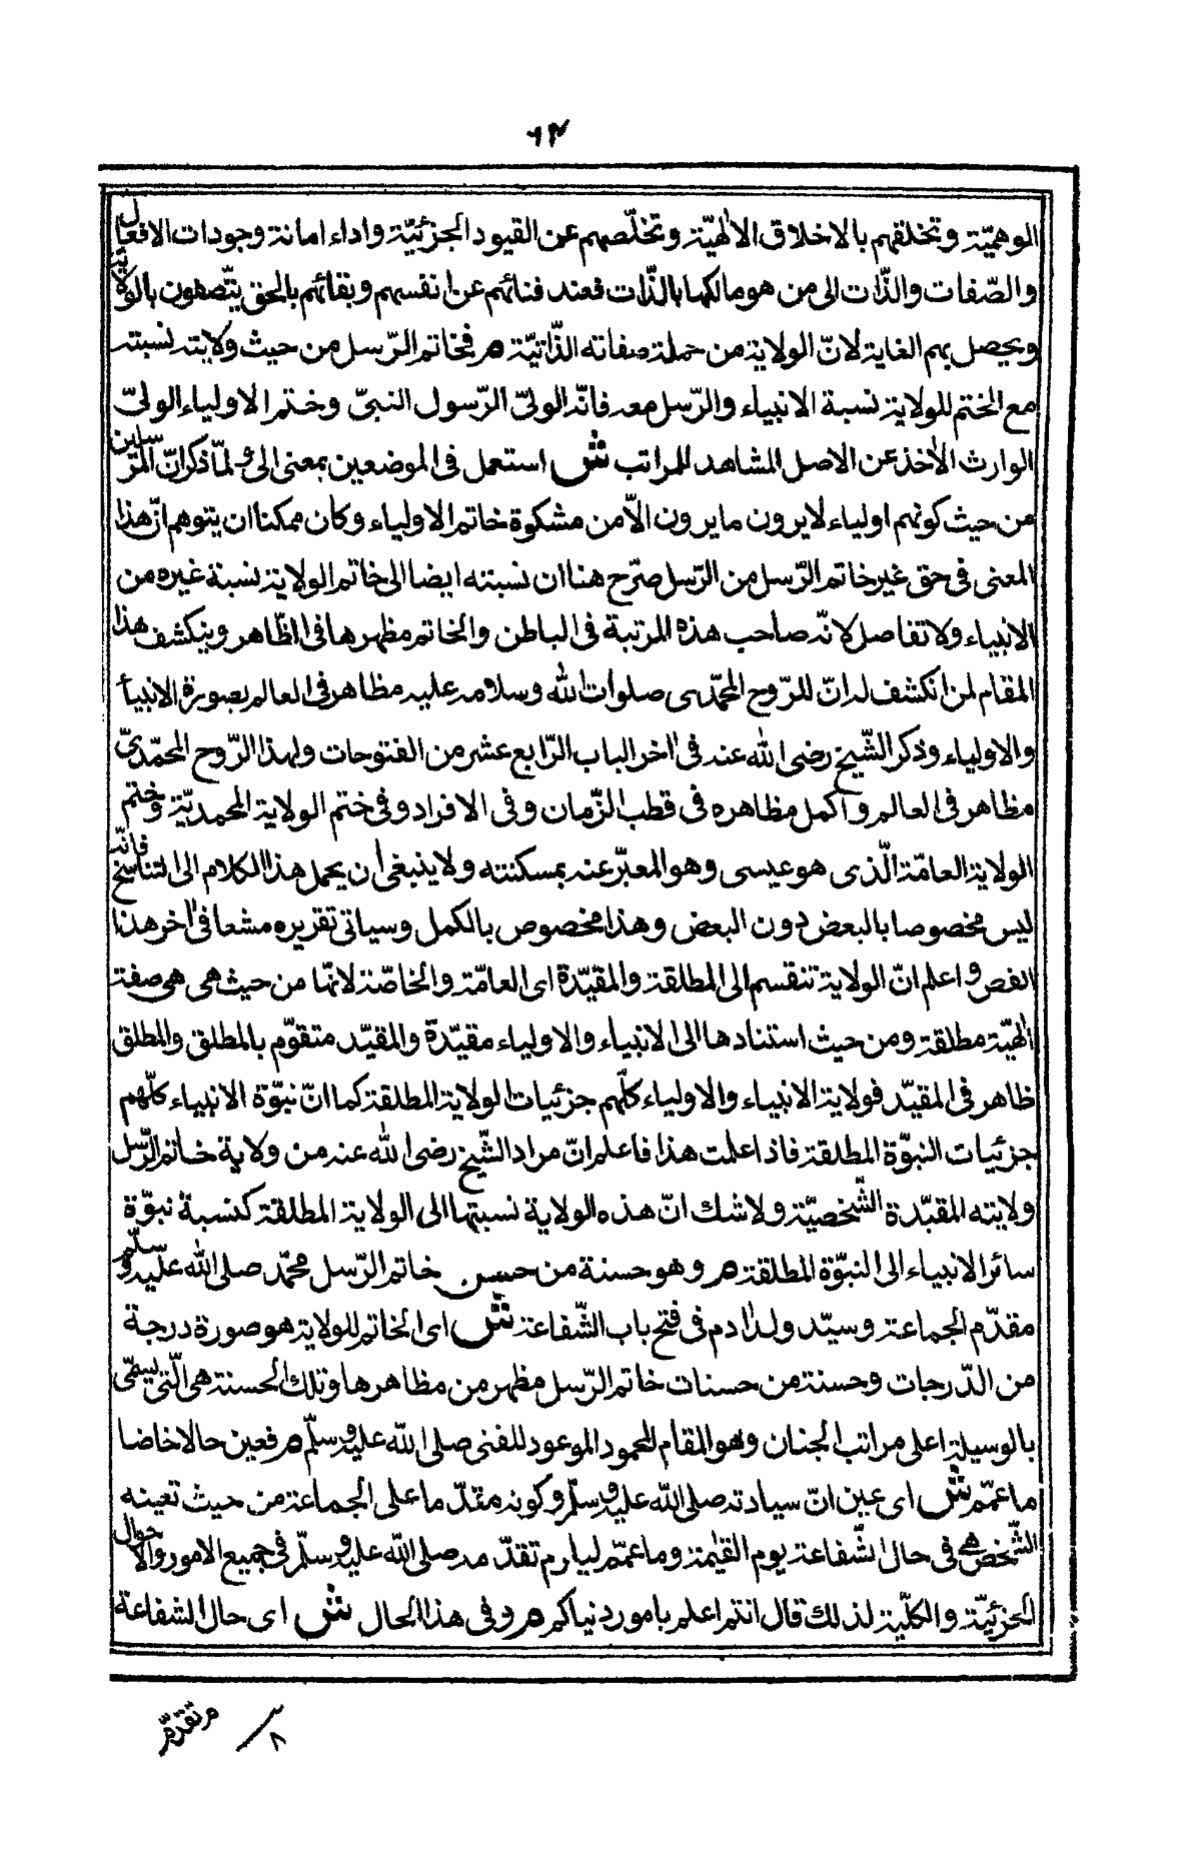 ٦٣
الموهميّة وتخلقهم بالاخلاق الالٰهيّة وتخلّصهم عن القيود الجزئيّة واداء امانة وجودات الافعال
والصّفات والذّات الى من هو مالكها بالذّات فعند فنائهم عن انفسهم وبقائهم بالحق يتّصفون بالولاية
ويحصل بهم الغاية لانّ الولاية من جملة صفاته الذّاتيّة م فخاتم الرّسل من حيث ولايته نسبته
مع الختم للولاية نسبة الانبياء والرّسل معه فانّه الولىّ الرّسول النبىّ وختم الاولياء الولىّ
الوارث الاٰخذ عن الاصل المشاهد للمراتب ش استعمل فى الموضعين بمعنى الى و لمّا ذكر انّ المرسلين
من حيث كونهم اولياء لايرون ما يرون الاّ من مشكوة خاتم الاولياء وكان ممكنا ان يتوهم انّ هذا
المعنى فى حق غير خاتم الرّسل من الرّسل صرّح هنا ان نسبته ايضا الى خاتم الولاية نسبة غيره من
الانبياء ولا تفاصل لانّه صاحب هذه المرتبة فى الباطن والخاتم مظهرها فى الظّاهر وينكشف هذا
المقام لمن انكشف له انّ للرّوح المحمّدى صلوات الله وسلامه عليه مظاهر فى العالم بصورة الانبيأ
والاولياء وذكر الشّيخ رضى الله عنه فى اٰخر الباب الرّابع عشر من الفتوحات ولهذا الرّوح المحمّدىّ
مظاهر فى العالم واكمل مظاهره فى قطب الزّمان وفى الافراد وفى ختم الولاية المحمديّة وختم
الولاية العامّة الّذى هو عيسى وهو المعبّر عنه بمسكنته ولا ينبغى أن يحمل هذا الكلام الى التناسخ فانّه
ليس مخصوصا بالبعض دون البعض وهذا مخصوص بالكمل وسياتى تقريره مشعا فى اٰخر هذا
الفص و اعلم انّ الولاية تنقسم الى المطلقة والمقيّدة اى العامّة والخاصّة لانّها من حيث هى هى صفة
الٰهيّة مطلقة ومن حيث استنادها الى الانبياء والاولياء مقيّدة والمقيّد متقوّم بالمطلق والمطلق
ظاهر فى المقيّد فولاية الانبياء والاولياء كلّهم جزئيات الولاية المطلقة كما انّ نبوّة الانبياء كلّهم
جزئيات النبوّة المطلقة فاذا علمت هذا فاعلم انّ مراد الشّيخ رضى الله عنه من ولاية خاتم الرّسل
ولايته المقيّدة الشّخصيّة ولا شك انّ هذه الولاية نسبتها الى الولاية المطلقة كنسبة نبوّة
سائر الانبياء الى النبوّة المطلقة م وهو حسنة من حسن خاتم الرّسل محمّد صلى الله عليه وسلّم
مقدّم الجماعة وسيّد ولد اٰدم فى فتح باب الشّفاعة ش اى الخاتم للولاية هو صورة درجة
من الدّرجات وحسنة من حسنات خاتم الرّسل مظهر من مظاهرها وتلك الحسنة هى الّتى يسمّى
بالوسيلة اعلى مراتب الجنان وهو المقام المحمود الموعود للنبى صلى الله عليه وسلّم م فعين حالا خاصا
ما عمّم ش اى عين انّ سيادته صلى الله عليه وسلّم وكونه مقدّما على الجماعة من حيث تعينه
الشّخصى فى حال الشّفاعة يوم القيٰمة وما عمّم ليلزم تقدّمه صلى الله عليه وسلّم فى جميع الامور والاحوال
الجزئيّة والكلّية لذلك قال انتم اعلم بامور دنياكم م وفى هذا الحال ش اى حال الشفاعة
م تقدّم
٨